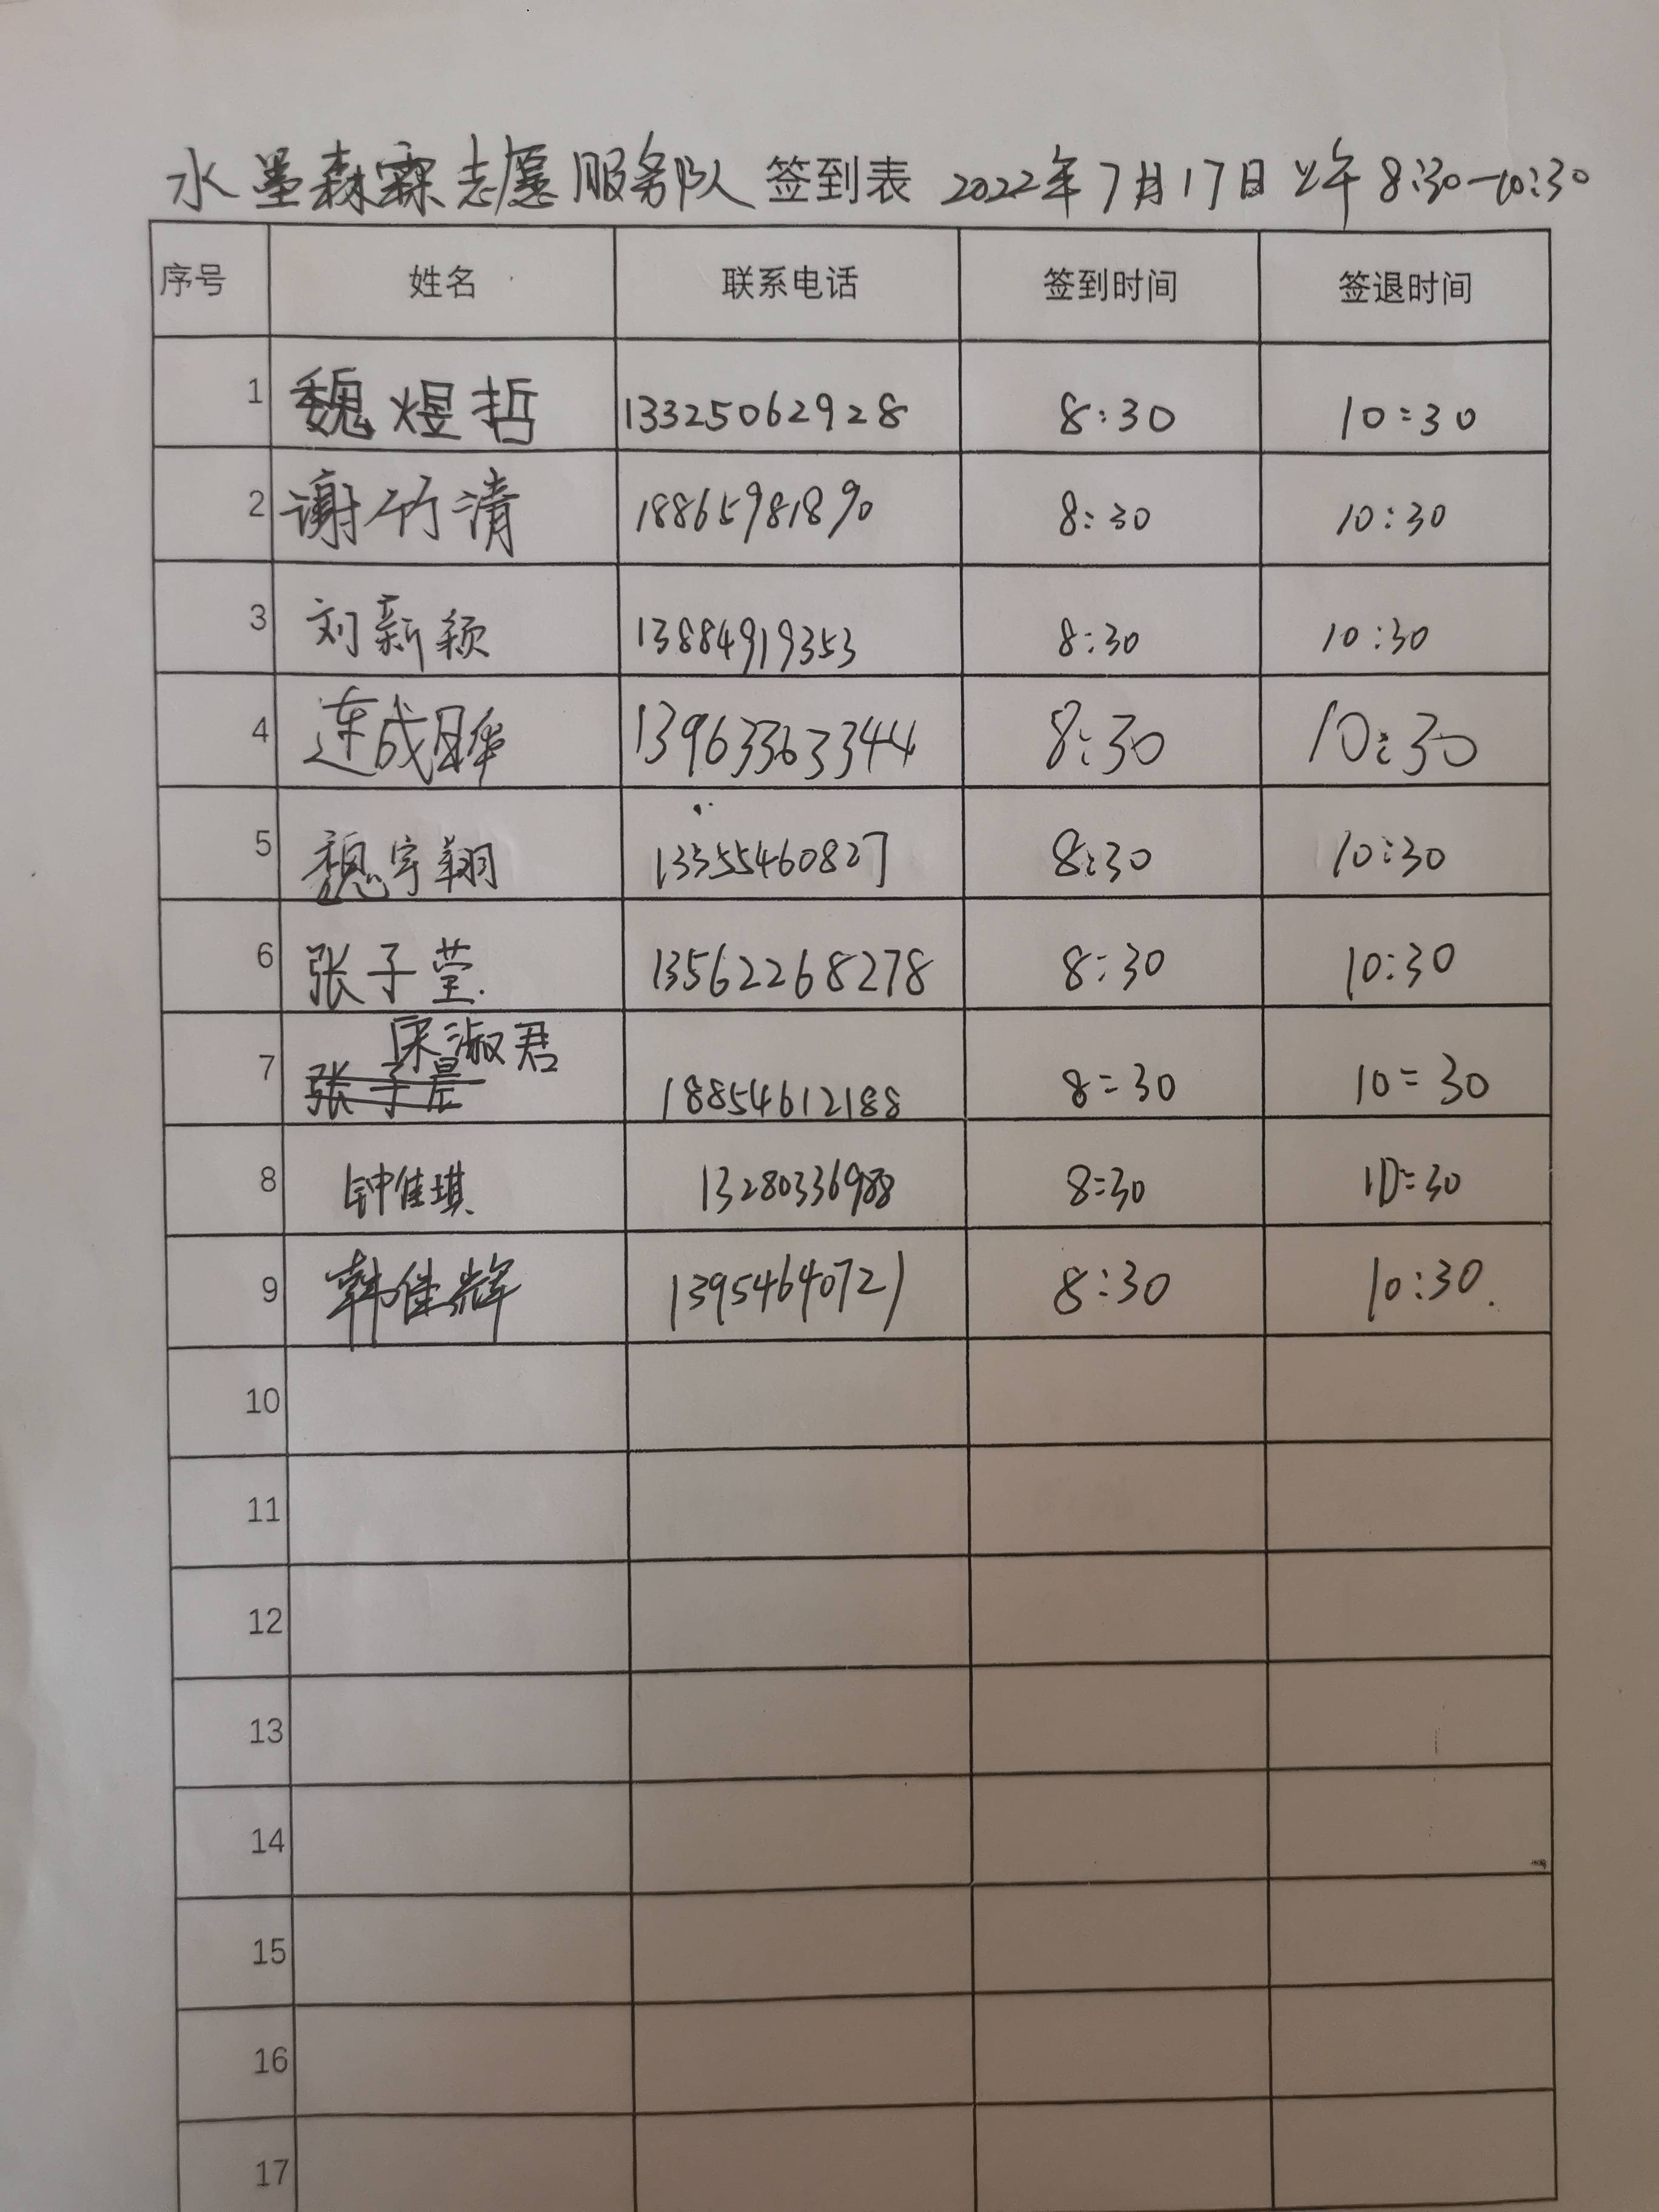 水墨森霖志愿服务队 签到表 2022年7月17日上午8:30-10:30
序号 姓名 联系电话 签到时间 签退时间
1 魏煜哲 13325062928 8:30 10:30
2 谢竹清 18865981890 8:30 10:30
3 刘新颖 13884919353 8:30 10:30
4 连成 13963363344 8:30 10:30
5 魏宇翔 13355460827 8:30 10:30
6 张子莹. 13562268278 8:30 10:30
宋淑君
7 张子晨 18854612188 8:30 10:30
8 钟佳琪 13280336988 8:30 10:30
9 韩佳辉 13954640721 8:30 10:30.
10
11
12
13
14
15
16
17